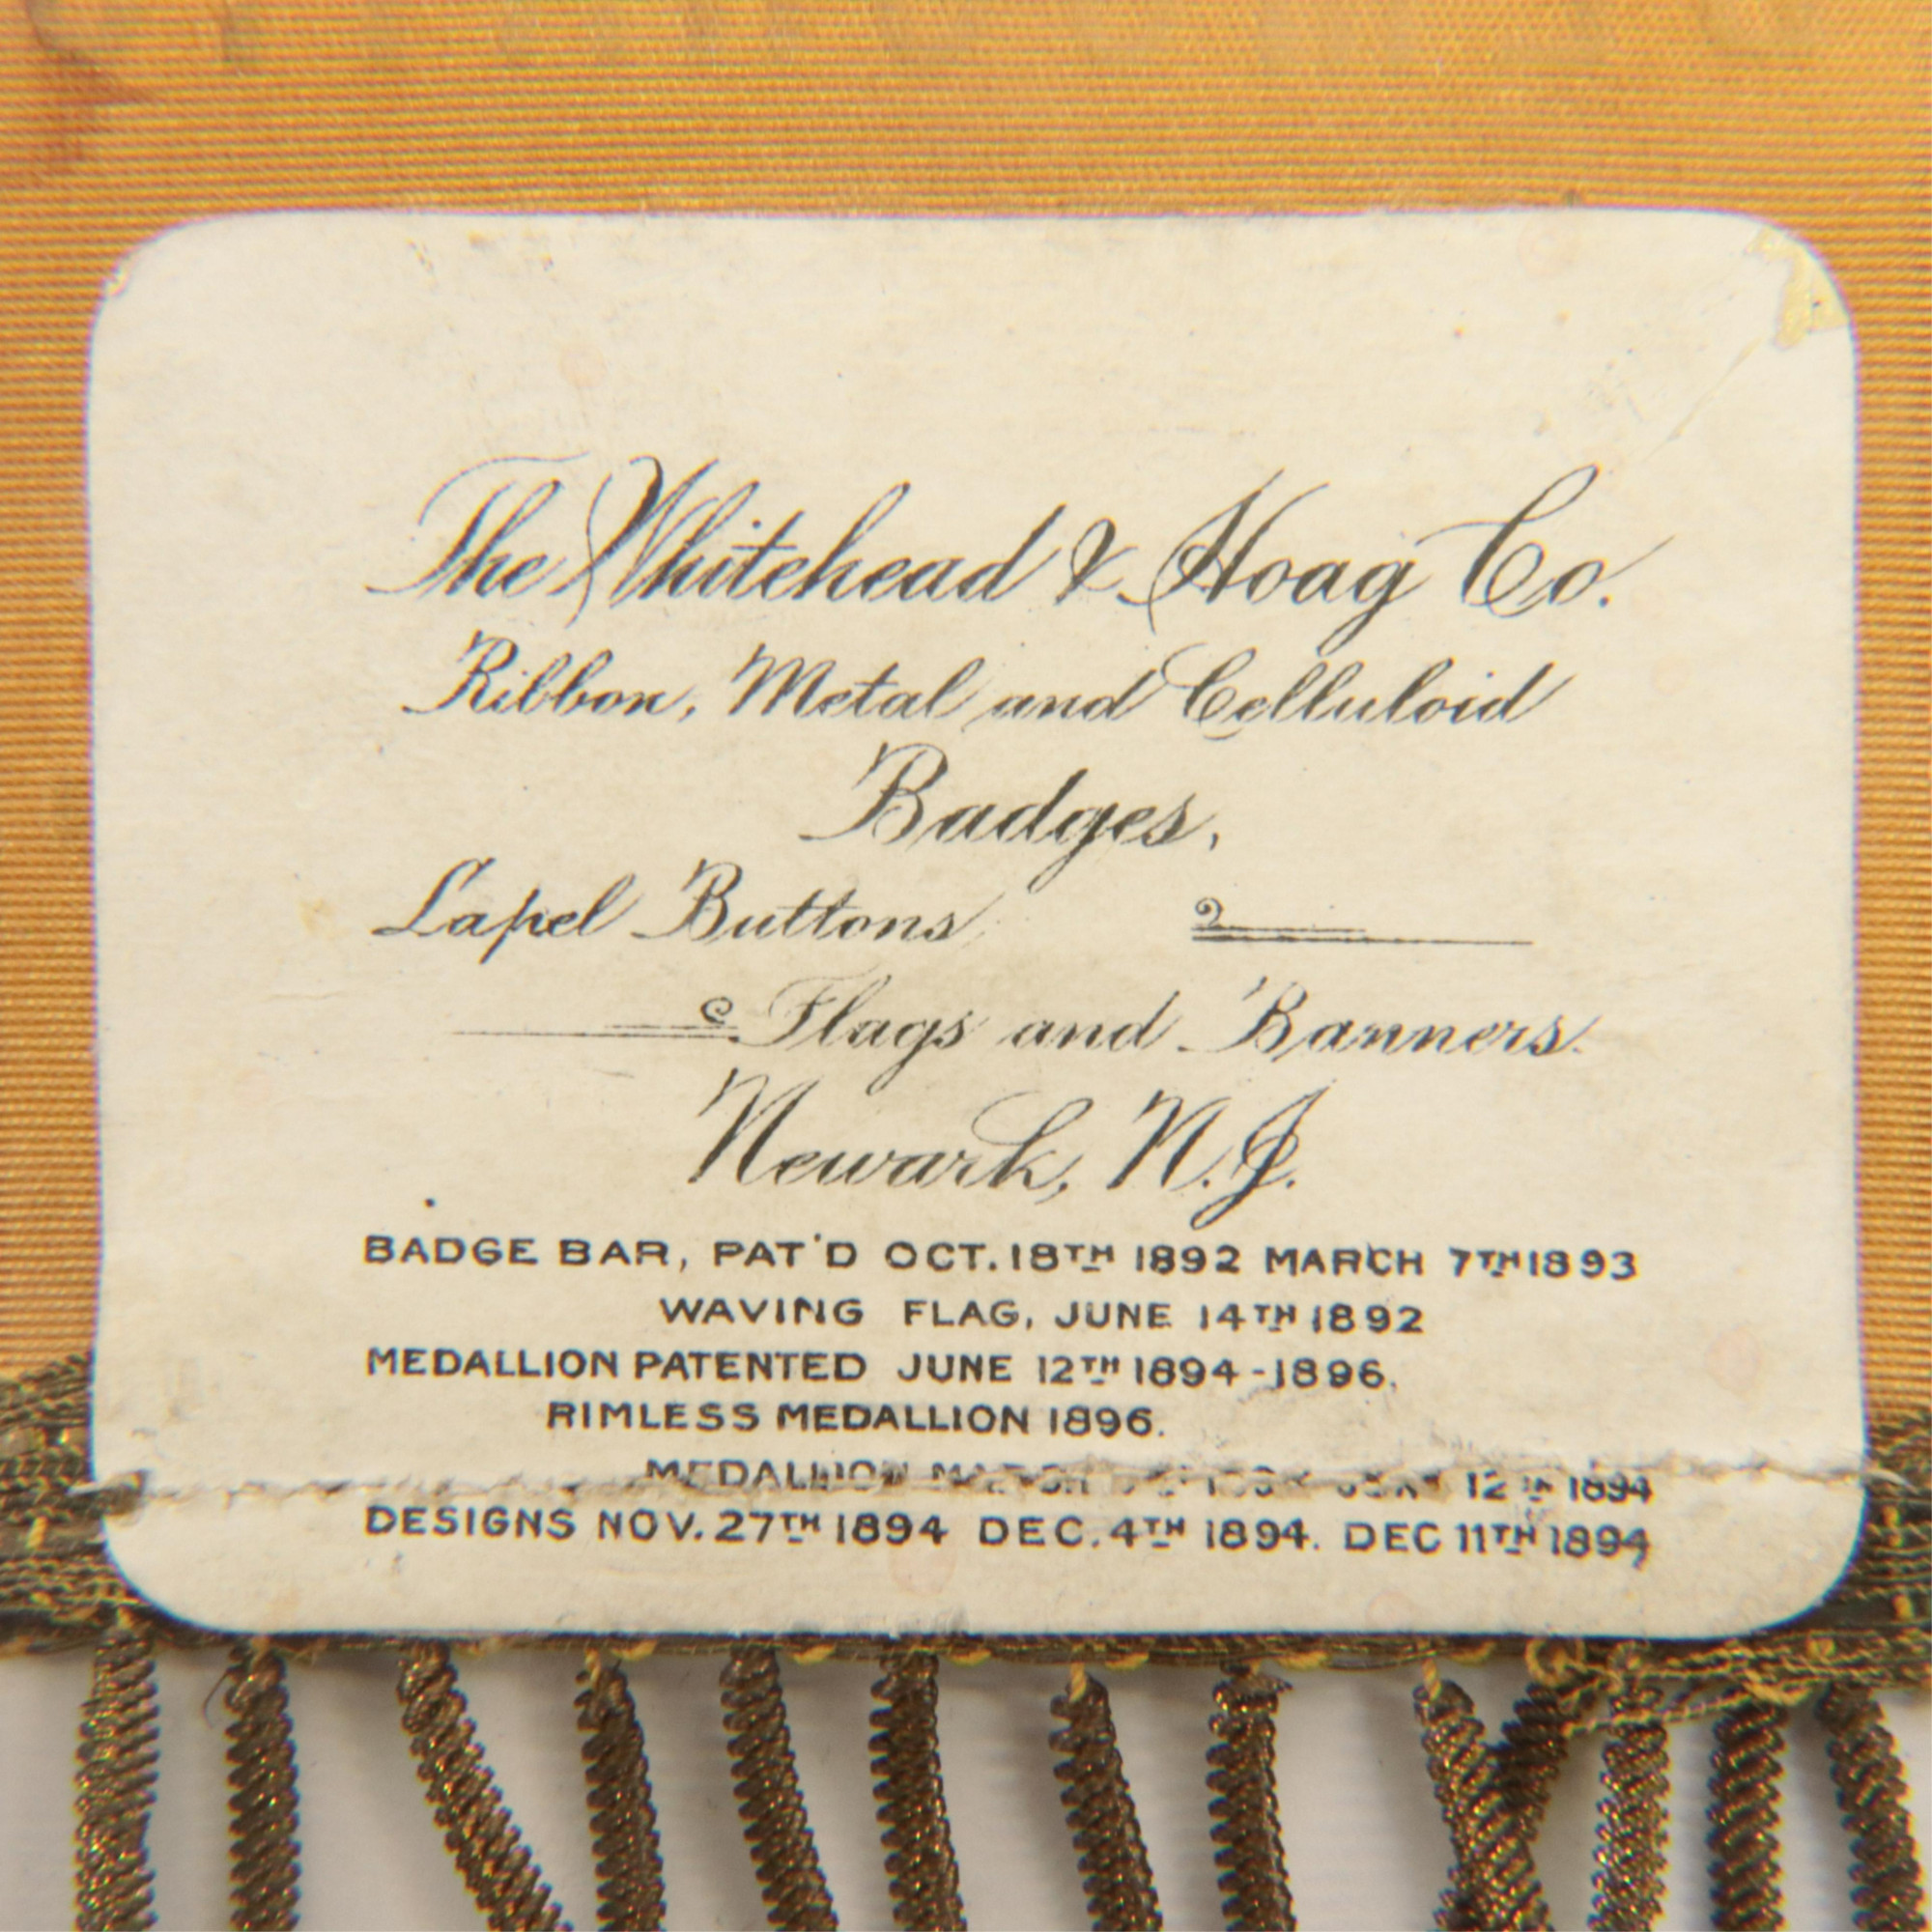 The Whitehead & Hoag Co.
Ribbon, Metal and Celluloid
Badges,
Lapel Buttons
Flags and Banners.
Newark, N.J.
BADGE BAR, PAT'D OCT. 18TH 1892 MARCH 7TH 1893
WAVING FLAG, JUNE 14TH 1892
MEDALLION PATENTED JUNE 12TH 1894-1896.
RIMLESS MEDALLION 1896.
MEDALLION 12TH 1894
DESIGNS NOV. 27TH 1894 DEC. 4TH 1894. DEC 11TH 1894